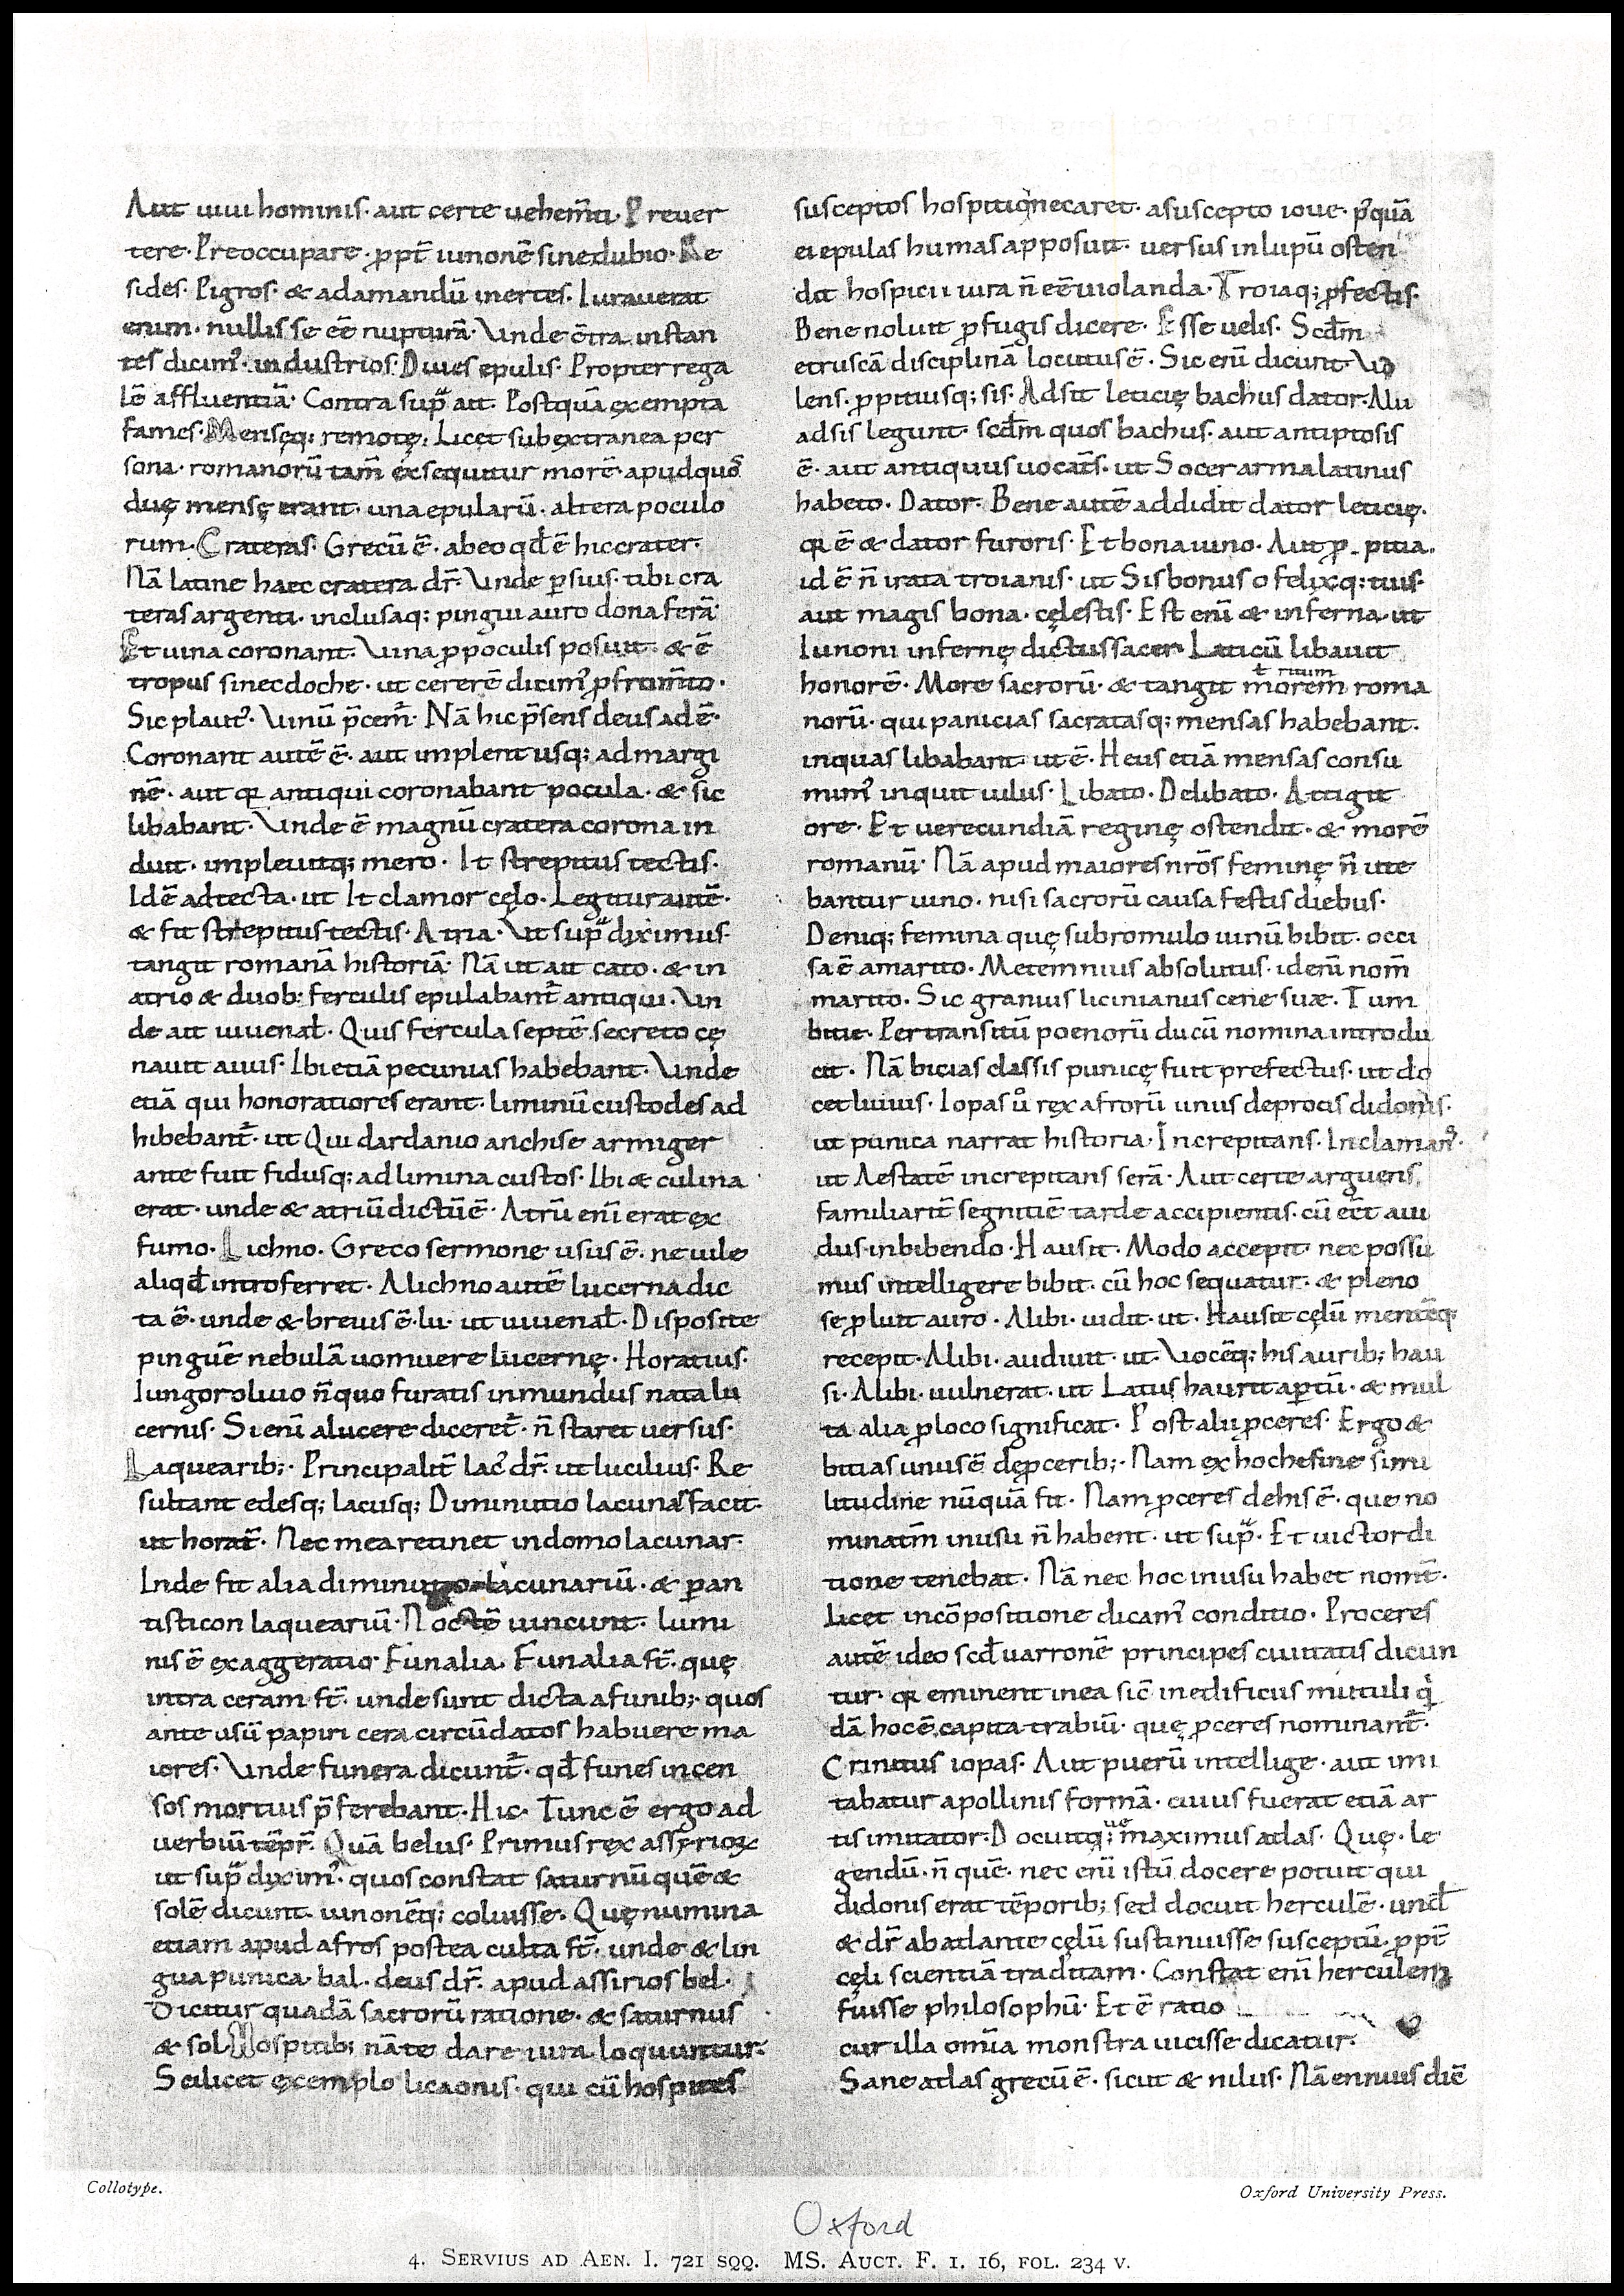 Aut uiui hominis· aut certe uehem̄ti· Preuer
tere· Preoccupare· ꝓpt̄ iunonē sine dubio· Re
sides· Pigros· & ad amandū inertes· Iurauerat
enim· nullis se eē nupturā· Unde ētra instan
tes dicim᷒· industrios· Diues epulis· Propter rega
lē affluentiā· Contra sup͛ ait· Postquā exempta
fames· Mensęq; remotę· Licet sub extranea per
sona· romanorū tam̄ exsequitur morē· apud quos
duę mensę erant· una epularū· altera poculo
rum· Crateras· Grecū ē· ab eo qđ ē hic crater·
Nā latine haec cratera dr̄· Unde ꝑsius· tibi cra
teras argenti· inclusaq; pingui auro dona ferā·
Et uina coronant· Uina ꝓ poculis posuit· & ē
tropus sinecdoche· ut cererē dicim᷒ ꝓ frum̄to·
Sic plaut᷒· Uinū p̄cem̄· Nā hic p̄sens deus adē·
Coronant autē ē· aut implent usq; ad margi
nē· aut qꝛ antiqui coronabant pocula· & sic
libabant· Unde ē magnū cratera corona in
duit· impleuitq; mero· It strepitus tectis·
Idē ad tecta· ut It clamor cęlo· Legitur autē·
& fit strepitus tectis· Atria· Ut sup͛ diximus·
tangit romanā historiā· Nā ut ait cato· & in
atrio & duob; ferculis epulabant᷒ antiqui· Un
de ait iuuenał· Quis fercula septē secreto cę
nauit auus· Ibi etiā pecunias habebant· Unde
etiā qui honoratiores erant· liminū custodes ad
hibebant᷒· ut Qui dardanio anchise armiger
ante fuit fidusq; ad limina custos· Ibi & culina
erat· unde & atriū dictū ē· Atrū enī erat ex
fumo· Lichno· Greco sermone usus ē· ne uile
aliqđ introferret· A lichno autē lucerna dic
ta ē· unde & breuis ē· lu· ut iuuenał· Disposite
pinguē nebulā uomuere lucernę· Horatius·
Iungor oliuo n̄ quo furatis inmundus nata lu
cernis· Si enī a lucere diceret᷒· n̄ staret uersus·
Laquearib;· Principalit̄ lac᷒ dr̄· ut lucilius· Re
sultant edesq; lacusq; Diminutio lacunas facit·
ut horat̄· Nec mea retinet in domo lacunar·
Inde fit alia diminutio· lacunariū· & ꝑ an
tisticon laqueariū· Noctē uincunt· Lumi
nis ē exaggeratio· Funalia· Funalia st̄· quę
intra ceram st̄· unde sunt dicta a funib;· quos
ante usū papiri cera circūdatos habuere ma
iores· Unde funera dicunt᷒· qđ funes incen
sos mortuis p̄ferebant· Hic· Tunc ē ergo ad
uerbiū tēpr̄· Quā belus· Primus rex assyrioꝝ
ut sup͛ diximꝰ· quos constat saturnū quē &
solē dicunt· iunonēq; coluisse· Quę numina
etiam apud afros postea culta st̄· unde & lin
gua punica· bal· deus dr̄· apud assirios bel·
Dicitur quadā sacrorū ratione· & saturnus
& sol· Hospitib; nā te dare iura loquuntur·
Scilicet exemplo licaonis· qui cū hospites
susceptos hospitioq; necaret· a suscepto ioue· p᷒quā
ei epulas humas apposuit· uersus in lupū osten
dit hospicii iura n̄ eē uiolanda· Troiaq; ꝓfectis·
Bene noluit ꝓfugis dicere· Esse uelis· Scđm
etruscā disciplinā locutus ē· Sic enī dicunt· Uo
lens· ꝓpitiusq; sis· Adsit leticię bachus dator· Alii
adsis legunt· scđm quos bachus· aut antiptosis
ē· aut antiquus uocat̄s· ut Socer arma latinus
habeto· Dator· Bene autē addidit dator leticię·
qꝛ ē & dator furoris· Et bona iuno· Aut ꝓ pitia·
id ē n̄ irata troianis· ut Sis bonus o felixq; tuis·
aut magis bona· cęlestis· Est enī & inferna· ut
Iunoni infernę dictus sacer· Laticū libauit
honorē· More sacrorū· & tangit morem roma
ł ritum
norū· qui panicias sacratasq; mensas habebant·
in quas libabant· ut ē· Heus etiā mensas consu
mim᷒ inquit iulus· Libato· Delibato· Attigit
ore· Et uerecundiā reginę ostendit· & morē
romanū· Nā apud maiores nr̄os feminę n̄ ute
bantur uino· nisi sacrorū causa festis diebus·
Deniq; femina quę sub romulo uinū bibit· occi
sa ē a marito· Metemnius absolutus· id enī nom̄
marito· Sic granius licinianus cene suæ· Tum
bitie· Per transitū poenorū ducū nomina introdu
cit· Nā bicias classis punicę fuit prefectus· ut do
cet liuius· Iopas ů rex afrorū unus de procis didonis·
ut punica narrat historia· Increpitans· Inclamans·
ut Aestatē increpitans serā· Aut certe arguens
familiarit̄ segnitiē tarde accipientis· cū eēt aui
dus in bibendo· Hausit· Modo accepit· nec possu
mus intelligere bibit· cū hoc sequatur· & pleno
se ꝓluit auro· Alibi· uidit· ut· Hausit cęlū mentēq;
recepit· Alibi· audiuit· ut· Uocēq; his aurib; hau
si· Alibi· uulnerat· ut Latus haurit aꝑtū· & mul
ta alia ꝓ loco significat· Post alii ꝓceres· Ergo &
bitias unus ē de ꝓcerib;· Nam ex hoc hesine simi
litudine nūquā fit· Nam ꝓceres de his ē· que no
minatm̄ in usu n̄ habent· ut sup͛· Et uictor di
tione tenebat· Nā nec hoc in usu habet nom̄t·
licet incōpositione dicam᷒ conditio· Proceres
autē ideo scđ uarronē principes ciuitatis dicun
tur· qꝛ eminent in ea sic̄ in edificiis mutuli q͛
dā hoc ē· capita trabiū· quę ꝓceres nominant᷒·
Crinitus iopas· Aut puerū intellige· aut imi
tabatur apollinis formā· cuius fuerat etiā ar
tis imitator· Docuit q; maximus atlas· Quę· le
gendū· n̄ quē· nec enī istū docere potuit qui
didonis erat tēporib; sed docuit herculē· unđ
& dr̄ ab atlante cęlū sustinuisse susceptū· ꝓpt̄
cęli scientiā traditam· Constat enī herculem
fuisse philosophū· Et ē ratio
cur illa om̄ia monstra uicisse dicatur·
Sane atlas grecū ē· sicut & nilus· Nā ennius dic̄
Collotype.
Oxford University Press.
Oxford
4. Servius ad Aen. I. 721 sqq. MS. Auct. F. 1. 16, fol. 234 v.